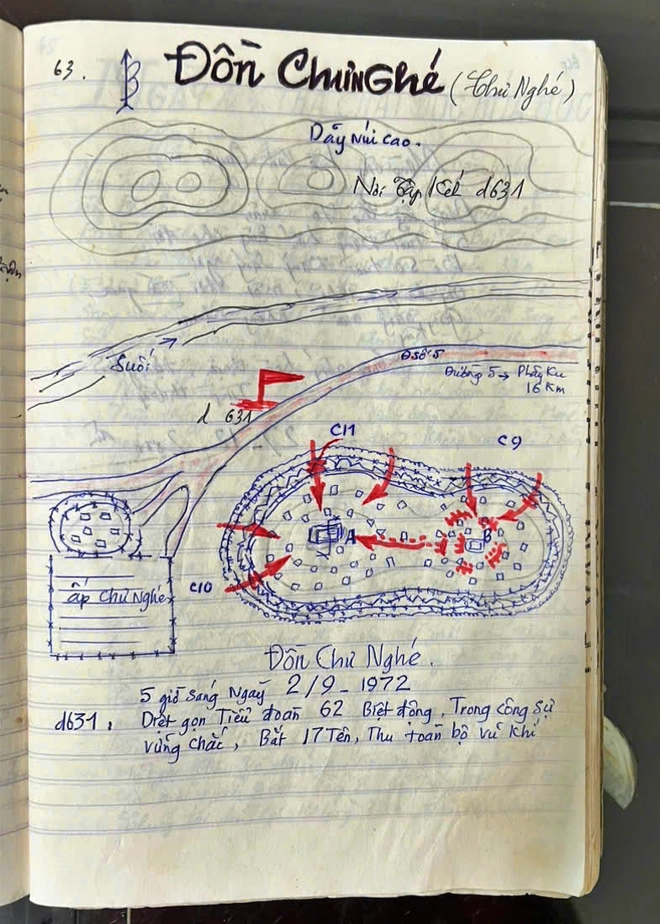 63.
B
Đồn ChưNghé (Chư Nghé)
Dãy núi cao.
Nơi Tập Kết d631
Suối
Đsố 5
Đường 5 → Plây Ku
16 Km
d 631
C11
C9
A
B
C10
ấp Chư Nghé
Đồn Chư Nghé.
5 giờ sáng Ngày 2/9-1972
d631, Diệt gọn Tiểu đoàn 62 Biệt động, Trong công sự
vững chắc, Bắt 17 Tên, Thu toàn bộ vũ khí